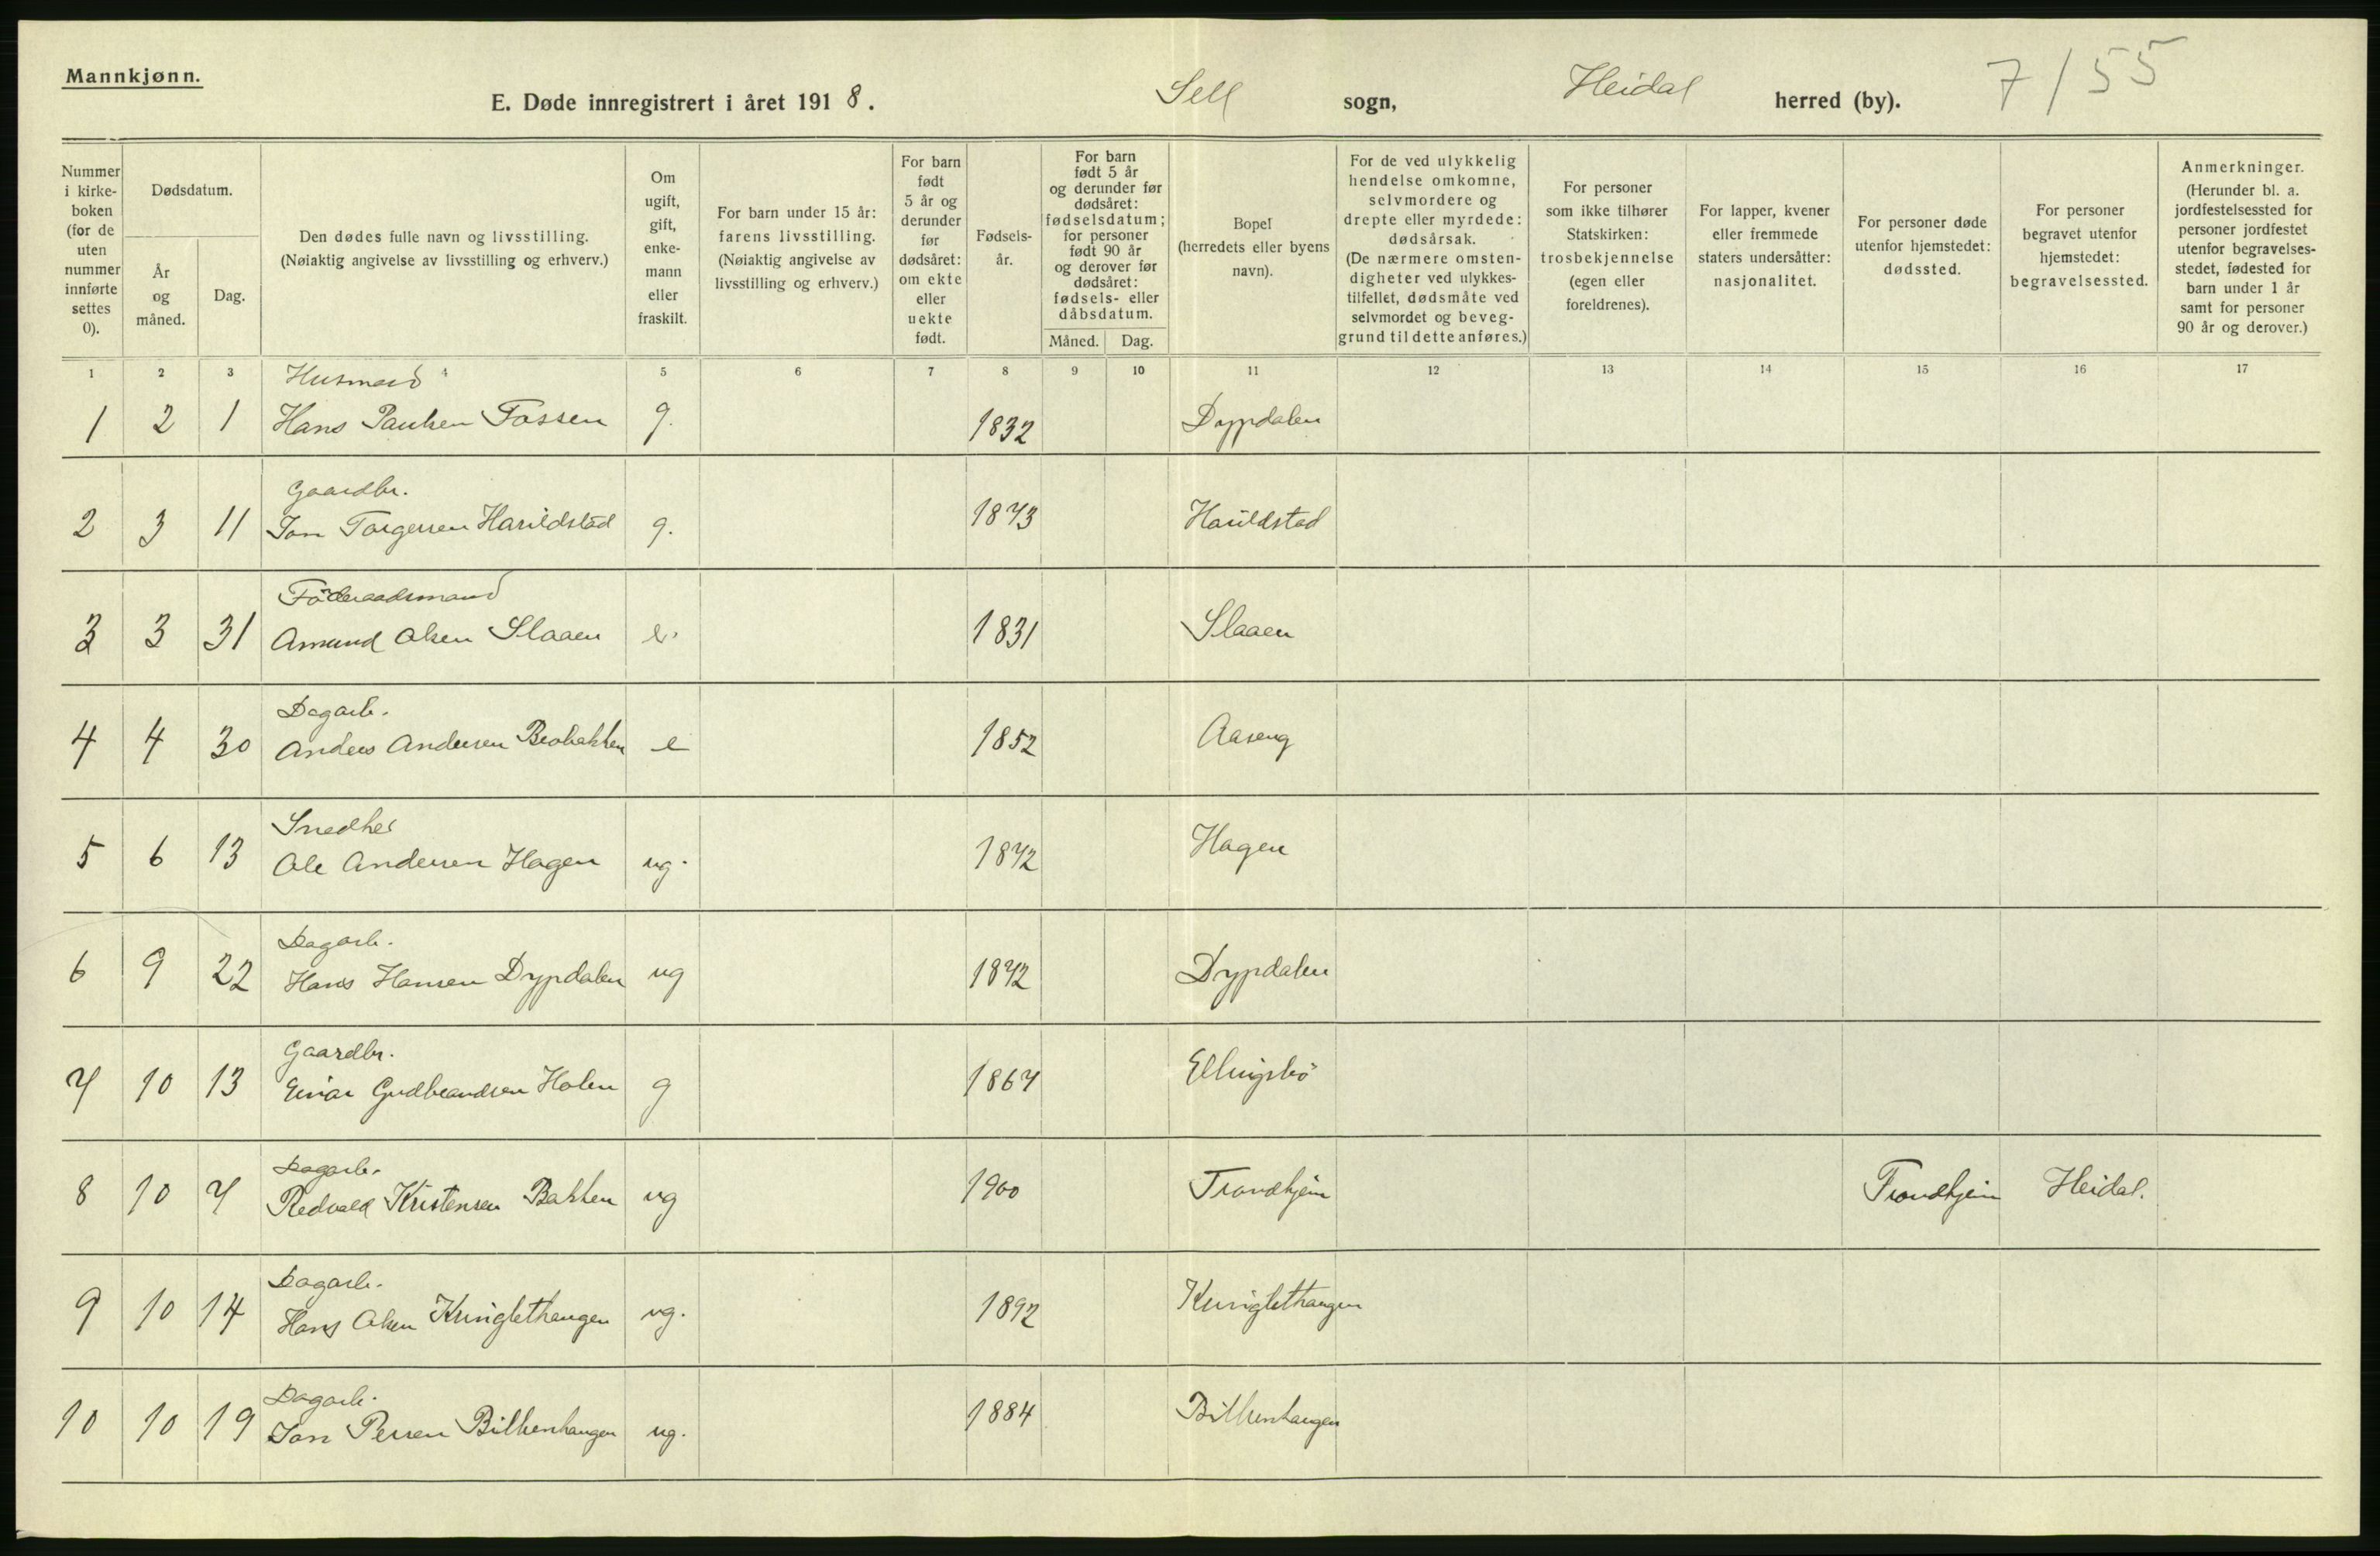 Mannkjønn.
E. Døde innregistrert i året 1918. Sell sogn, Heidal herred (by). 7/55
Nummer i kirke-boken (for de uten nummer innførte settes 0).
Dødsdatum.
År og måned.
Dag.
Den dødes fulle navn og livsstilling.
(Nøiaktig angivelse av livsstilling og erhverv.)
Om ugift, gift, enke-mann eller fraskilt.
For barn under 15 år: farens livsstilling. (Nøiaktig angivelse av livsstilling og erhverv.)
For barn født 5 år og derunder før dødsåret: om ekte eller uekte født.
Fødsels-år.
For barn født 5 år og derunder før dødsåret: fødselsdatum; for personer født 90 år og derover før dødsåret: fødsels- eller dåbsdatum.
Måned. Dag.
Bopel (herredets eller byens navn).
For de ved ulykkelig hendelse omkomne, selvmordere og drepte eller myrdede: dødsårsak. (De nærmere omsten-digheter ved ulykkes-tilfellet, dødsmåte ved selvmordet og beveg-grund til dette anføres.)
For personer som ikke tilhører Statskirken: trosbekjennelse (egen eller foreldrenes).
For lapper, kvener eller fremmede staters undersåtter: nasjonalitet.
For personer døde utenfor hjemstedet: dødssted.
For personer begravet utenfor hjemstedet: begravelsessted.
Anmerkninger. (Herunder bl. a. jordfestelsessted for personer jordfestet utenfor begravelses-stedet, fødested for barn under 1 år samt for personer 90 år og derover.)
1 2 3 4 5 6 7 8 9 10 11 12 13 14 15 16 17
Husmand
1 2 1 Hans Paulsen Fossen g. 1832 Dypdalen
Gaardbr.
2 3 11 Jon Torgersen Harildstad g. 1873 Harildstad
Föderaadsmand
3 3 31 Amund Olsen Slaaen e. 1831 Slaaen
Dagarb.
4 4 30 Anders Andersen Brobakken e 1852 Aaseng
Snedker
5 6 13 Ole Andersen Hagen ug. 1872 Hagen
Dagarb.
6 9 22 Hans Hansen Dypdalen ug 1872 Dypdalen
Gaardbr.
7 10 13 Einar Gudbrandsen Holen g 1867 Ellingsbö
Dagarb.
8 10 7 Redvald Kristensen Bakken ug 1900 Trondhjem Trondhjem Heidal.
Dagarb.
9 10 14 Hans Olsen Kringlethaugen ug. 1892 Kringlethaugen
Dagarb.
10 10 19 Jon Persen Bilbenhaugen ug. 1884 Bilbenhaugen